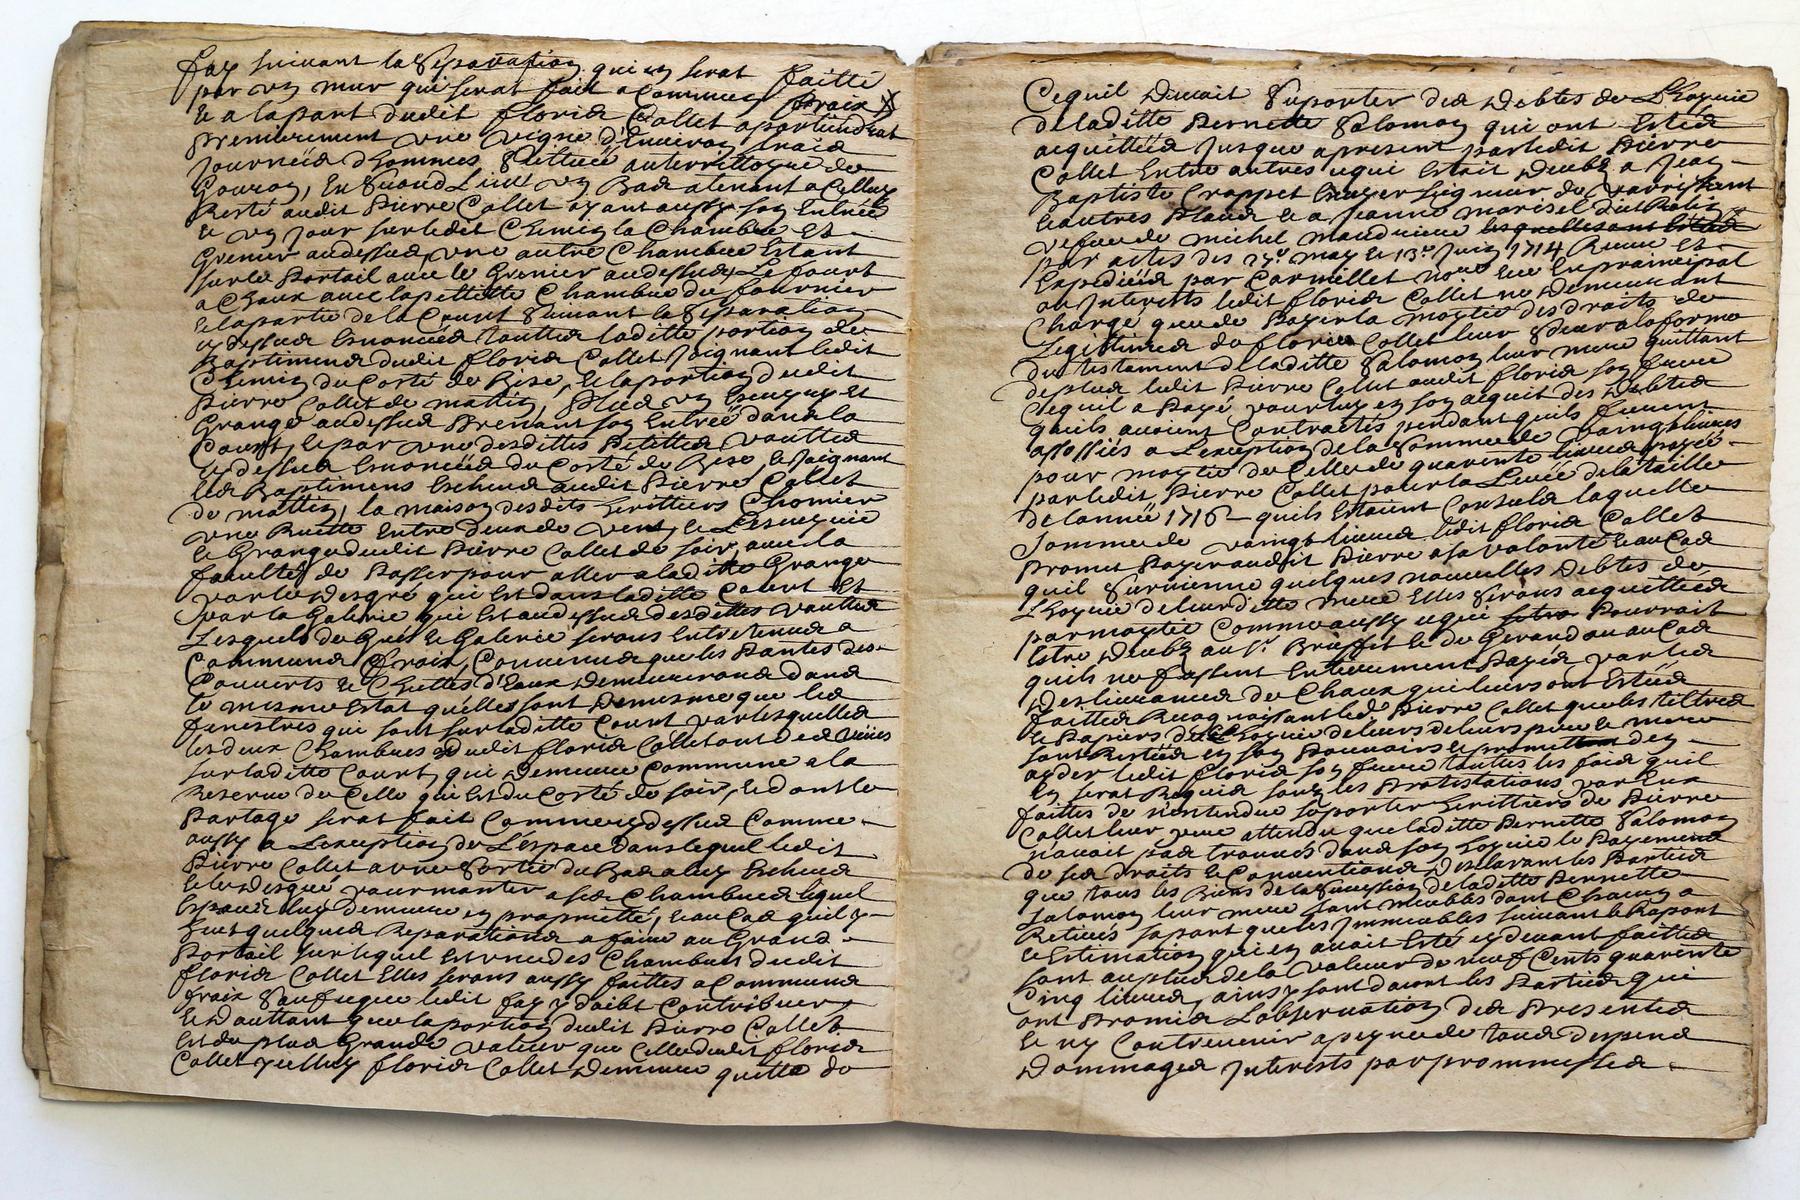 fay suivant la Separation qui en serat faitte
par un mur qui serat fait a Communs fraix X
Et a lapart dudit Floris Collet apartiendrat
Premierement une vigne d'Environ trois
Journéés d'hommes Scituée auterrittoyre de
Gouron, En Suond Lieu un Bas atenant a Celluy
Resté audit Pierre Collet ayant aussy son Entréé
Et un jour sur ledit Chemin la Chambre Et
Grenier audessus, une autre Chambre Estant
sur le Portail avec le Grenier audessus, Le fourt
a Chaux avec la pettitte Chambre du fournier
Et la partie de la Court Suivant la Separation
cy dessus Enoncéé toutte laditte portion de
Bastimens dudit Floris Collet Joignant ledit
Chemin du Costé de Bise, Et la portion dudit
Pierre Collet de mattin, Plus un Escuyuz Et
Grange audessus Prenant son Entréé dans la
Court, Et par une desdittes Petittes vouttes
cy dessus Enoncéés du Costé de Bise, Et Joignant
Les Bastimens Escheus audit Pierre Collet
de mattin, la maison desdits heritiers Chomier
une Ruette Entre deux de vent, Et L'Escuyrie
Et Grange dudit Pierre Collet de soir, avec la
faculté de Passer pour aller a laditte Grange
par le desgré qui Est dans laditte Court Et
par la Galerie qui Est audessus desdittes vouttes
Lesquels degrés Et Galerie serons Entretenus a
Communs fraix, Convenus que les Pantes des
Couverts Et Chuttes d'Eaux demeurerons dans
le mesme Estat quelles sont de mesme que les
fenestres qui sont sur laditte Court par lesquelles
les deux Chambres dudit Floris Collet ont des vuües
sur laditte Court, qui demeure Commune a la
Reserve de Celle qui Est du Costé de soir, Et dont le
Partage serat fait Comme cy dessus Comme
aussy a L'exception de L'espace dans lequel ledit
Pierre Collet a une Sortie du Bas a luy Escheus
Et le desgré pour monter a ses Chambres lequel
Espace luy demeure en proprietté, Et au Cas quil y
Eut quelques Reparations a faire au Grand
Portail sur lequel Est une des Chambres dudit
Floris Collet Elles serons aussy faittes a Communs
fraix Sauf ledit fay y doibt Contribuer
Et d'auttant que la portion dudit Pierre Collet
Est de plus Grande valeur que Celle dudit Floris
Collet Floris Collet demeure quitte de
Cequil devait Suporter des debtes de L'hoyrie
de laditte Pernette Salomon qui ont Estés
acquittéés jusque apresent par ledit Pierre
Collet Entre autres cequi Estait deubt a Jean
Baptiste Crappet Escuyer Seigneur de
Et autres Places Et a Jeanne marisel
vefve de Michel
par actes des 27e. may Et 13e. Juin 1714 Receus Et
Expediéés par Carmillet nore. Eue En prainsipal
ou Interests ledit Floris Collet ne demeurant
Chargé que de Payer la moytié des droits de
Legittimes de Collet leur Sœur a la forme
du testament de laditte Salomon leur mere quittant
de plus ledit Pierre Collet audit Floris son frere
Cequil a Payé pour luy en son acquit des debtes
quils avoient Contractés pendant quils furent
assossiés a L'exception de la Somme de vaingt livres
pour moytié de Celle de quarente livres payéé
par ledit Pierre Collet pour la Levéé de la taille
de L'annéé 1716 quils Estoient Consuls laquelle
Somme de vaingt livres ledit Floris Collet
Promet Payer audit Pierre a sa volonté Et au Cas
quil Survienne quelques nouvelles debtes de
L'hoyrie de leurditte mere Elles serons acquittéés
par moytié Comme aussy cequi Pourrait
Estre deubt au Sr. Et de Gerand ou au Cas
quils ne fussent Entierement Payés par les
deslivrances de Chaux qui leurs ont Estéés
faittes Recognaissant led. Pierre Collet que les tiltres
Et Papiers de L'hoyrie de leurs pere Et mere
sont Restés en son Pouvoir Et promettant d'en
ayder ledit Floris son frere touttes les fois quil
En serat Requis sous les Protestations par Eux
faittes de n'entendre suporter heritiers de Pierre
Collet leur pere attendu que laditte Pernette Salomon
n'avait pas trouvés dans son hoyrie le Payement
de ses droits Et Conventions, Desclarant les Parties
que tous les Biens de la Succession de laditte Pernette
Salomon leur mere tant meubles dont Chacun a
Retirés sa part que les Immeubles suivant le Raport
Et Estimation qui en avait Esté cy devant faitte
sont au plus de la valeur de neuf Cents quarente
Cinq livres, ainsy sont d'acort les Parties qui
ont Promis L'observation des Presentes
Et ny Contrevenir a peyne de tous despens
Dommages Interests par promesses